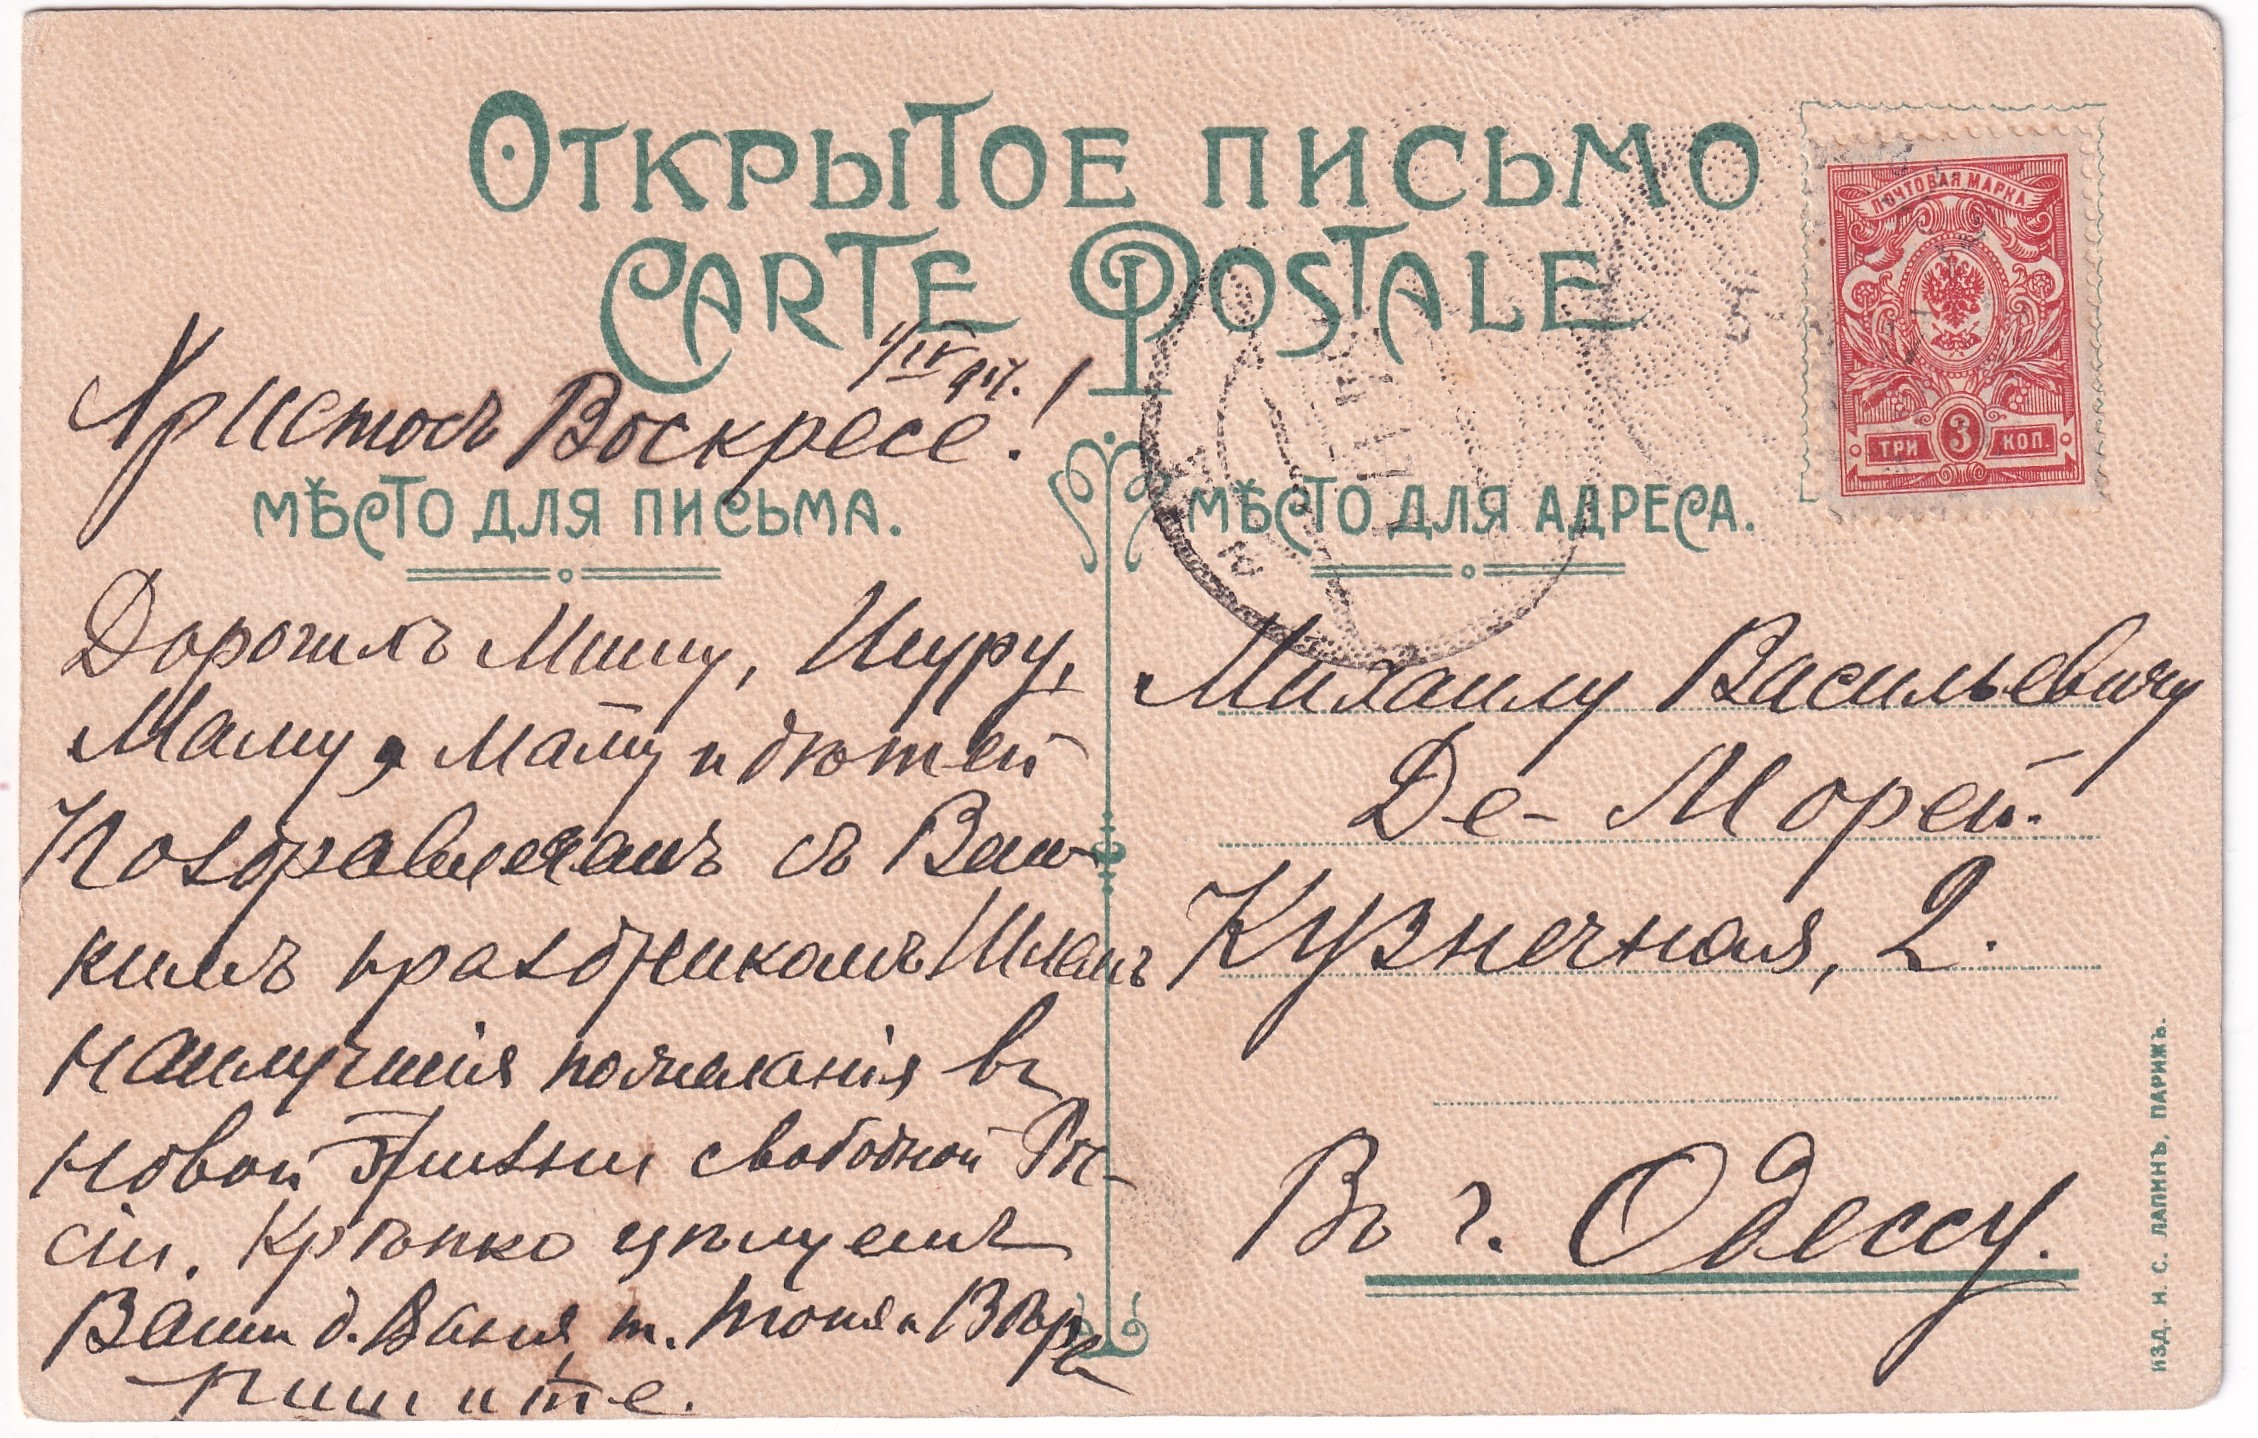 Открытое письмо
Carte Postale
ПОЧТОВАЯ МАРКА
ТРИ 3 КОП.
1/IV 917.
Христосъ Воскресе!
Мѣсто для письма.
Мѣсто для адреса.
Дорогихъ Мишу, Шуру,
Маму, Мату и дѣтей
Поздравляемъ съ Вели-
кимъ праздникомъ Шлемъ
наилучшія пожеланія въ
новой жизни свободной Рос-
сіи. Крѣпко цѣлуемъ
Ваши д. Ваня, т. Тоня и Вѣра
пишите.
Михаилу Васильевичу
Де-Морей.
Кузнечная, 2.
Въ г. Одессу.
Изд. Н. С. Лапинъ, Парижъ.